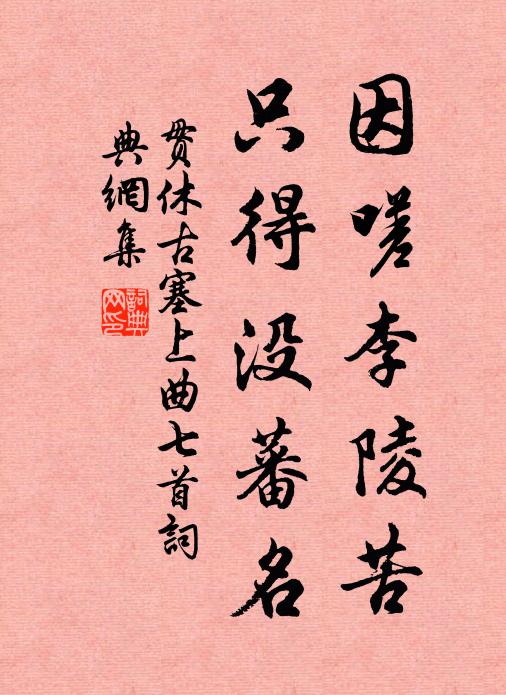 因嗟李陵苦
只得没蕃名
贯休古塞上曲七首詞
典網集
詞典
网印